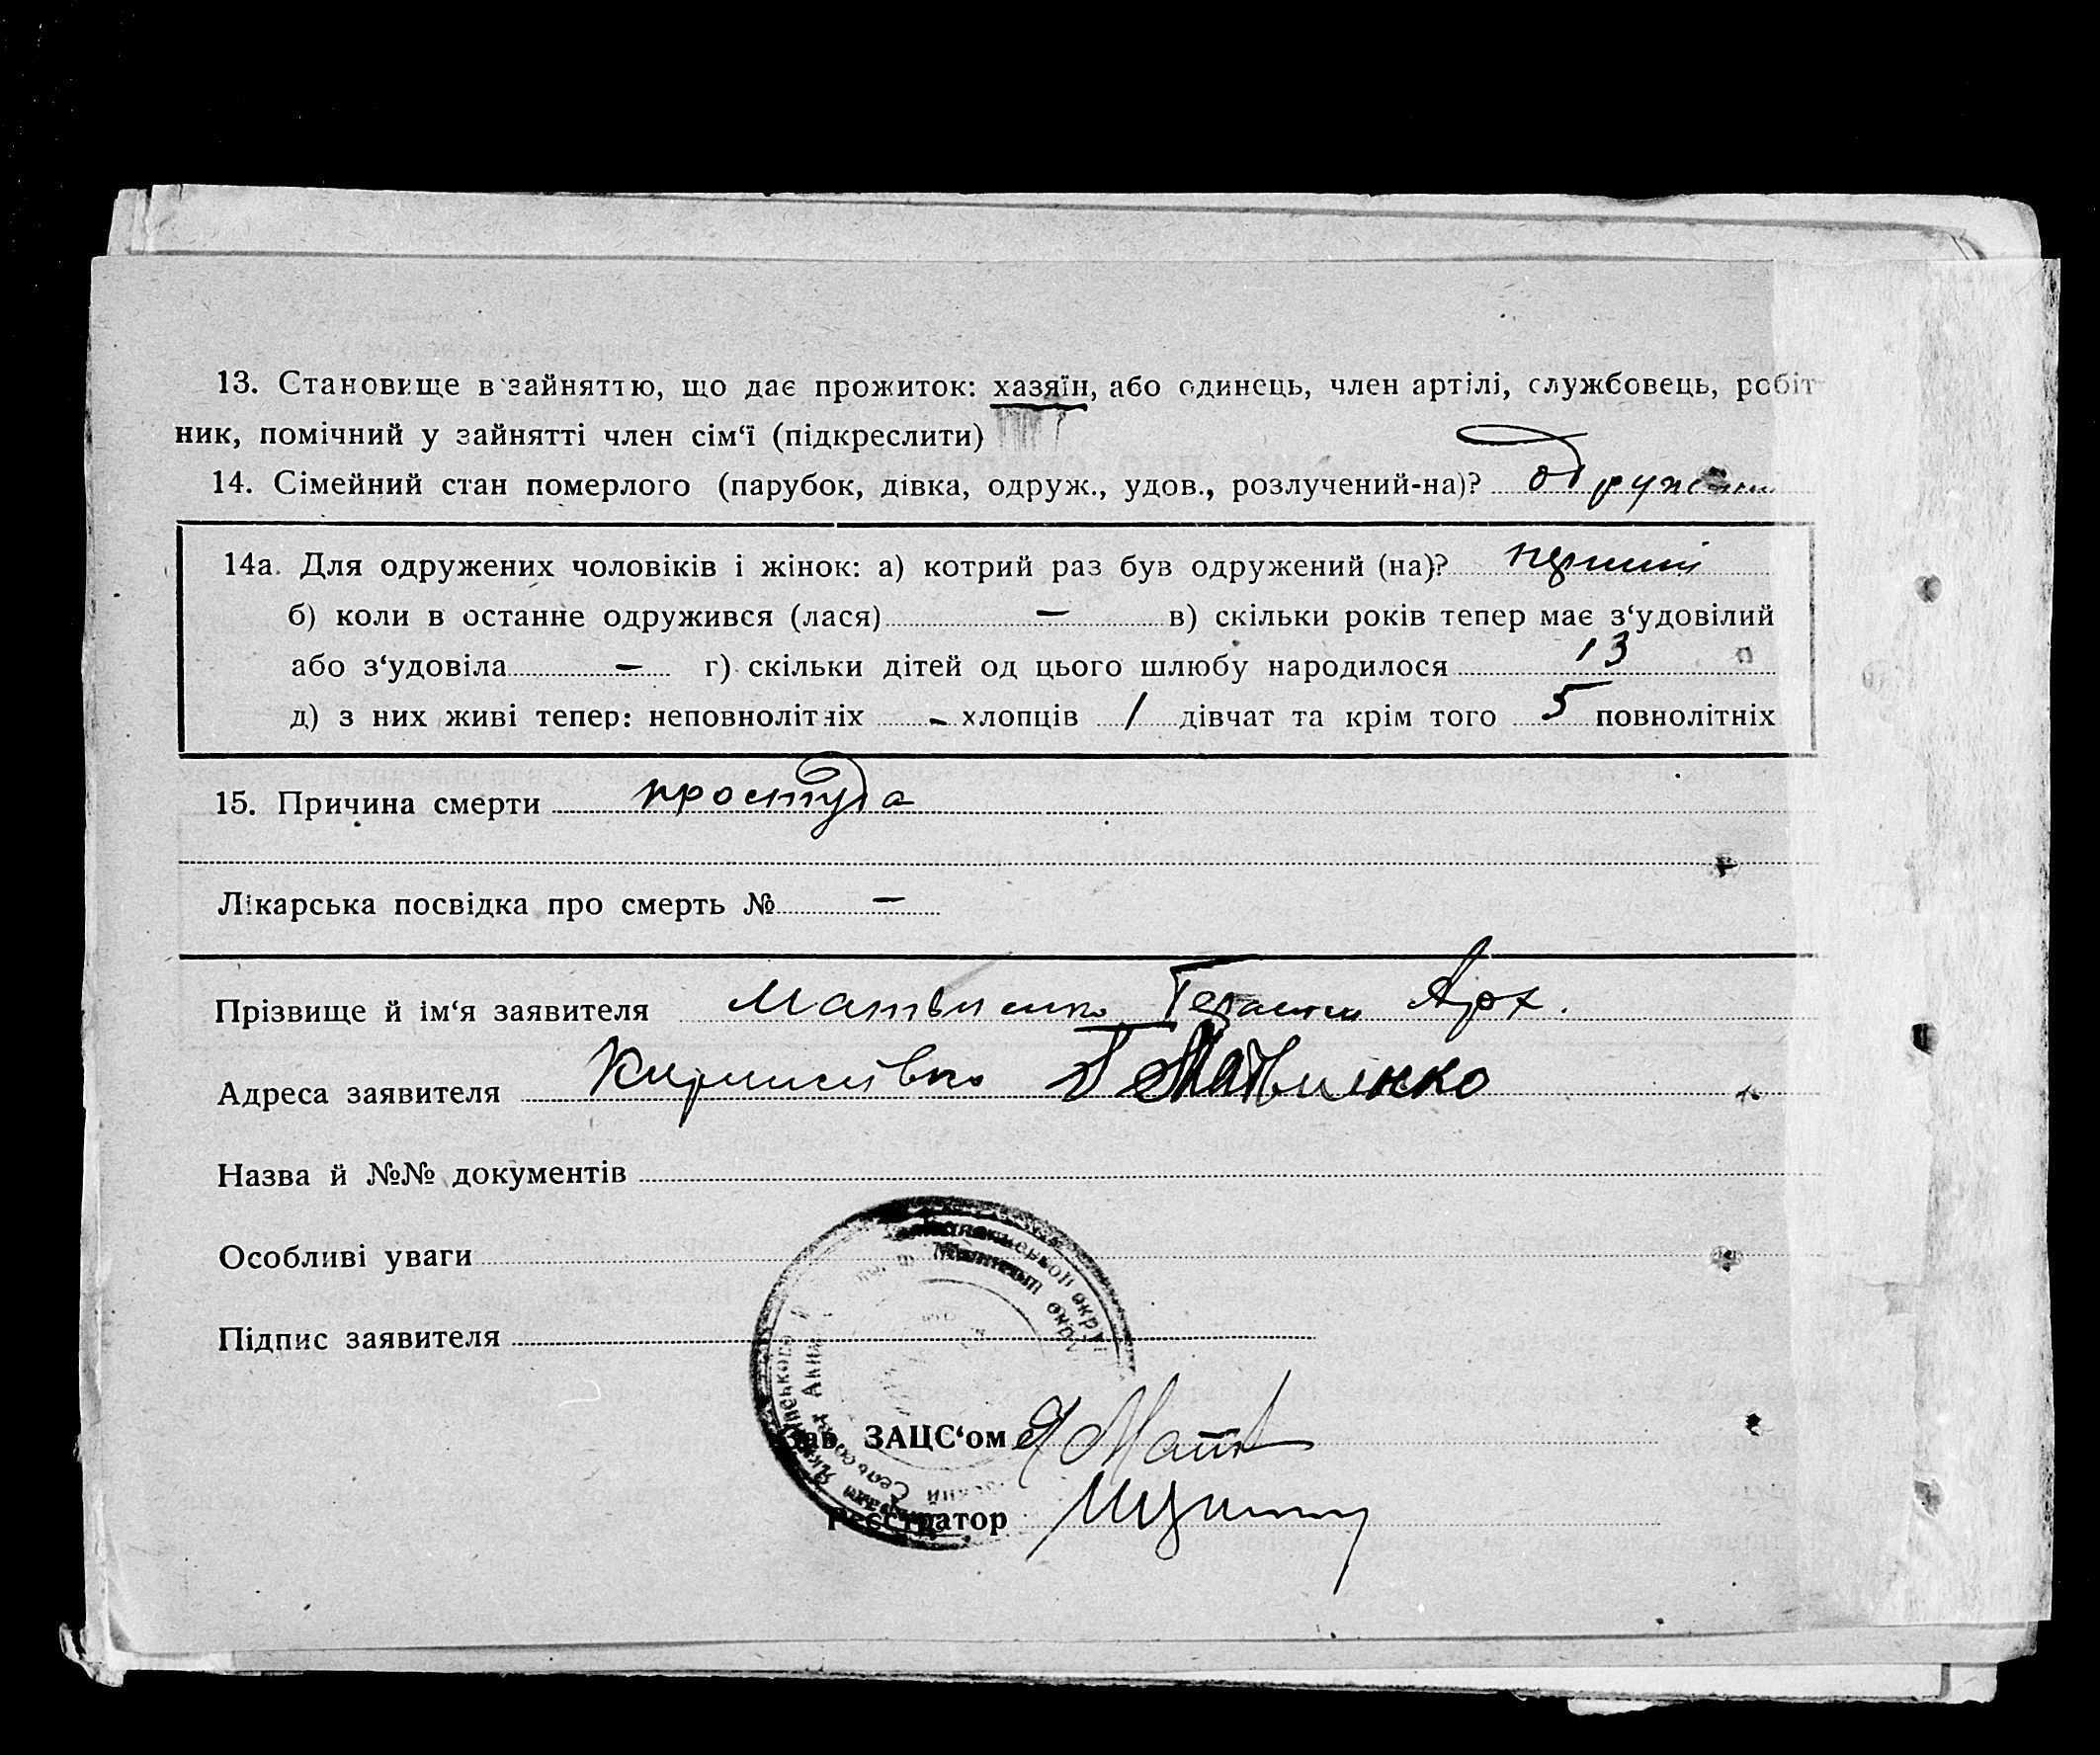 13. Становище в зайняттю, що дає прожиток: хазяїн, або одинець, член артілі, службовець, робіт
ник, помічний у зайнятті член сім‘ї (підкреслити)
14. Сімейний стан померлого (парубок, дівка, одруж., удов., розлучений-на)? одружений
14а. Для одружених чоловіків і жінок: а) котрий раз був одружений (на)? перший
б) коли в останне одружився (лася) — в) скільки років тепер має з‘удовілий
або з‘удовіла — г) скільки дітей од цього шлюбу народилося 13
д) з них живі тепер: неповнолітніх - хлопців 1 дівчат та крім того 5 повнолітніх
15. Причина смерти простуда
Лікарська посвідка про смерть № —
Прізвище й ім‘я заявителя Матвиенко Герасим Арх.
Адреса заявителя Г Матвиенко
Назва й №№ документів
Особливі уваги
Підпис заявителя
Зав. ЗАЦС‘ом
Реєстратор